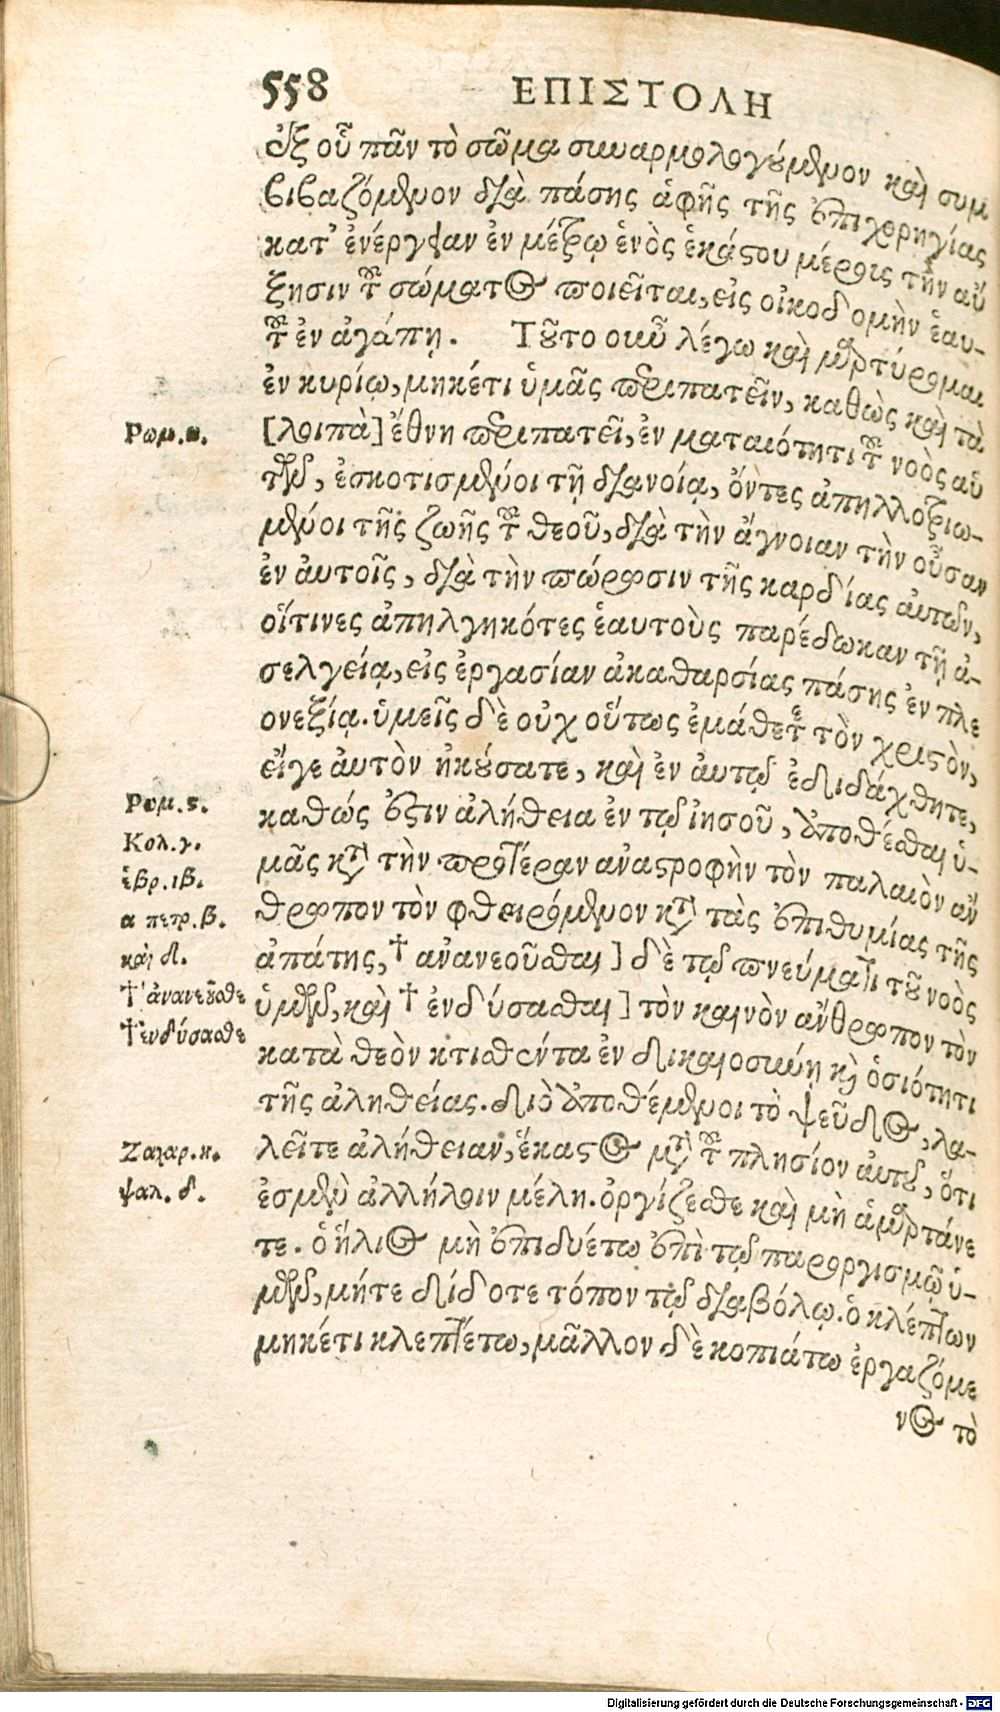 558 ΕΠΙΣΤΟΛΗ
ἐξ οὗ πᾶν τὸ σῶμα συναρμολογούμενον καὶ συμ
βιβαζόμενον διὰ πάσης ἁφῆς τῆς ἐπιχορηγίας
κατ' ἐνέργειαν ἐν μέτρῳ ἑνὸς ἑκάστου μέρους τὴν αὔ
ξησιν τοῦ σώματος ποιεῖται, εἰς οἰκοδομὴν ἑαυ-
τοῦ ἐν ἀγάπῃ. Τοῦτο οὖν λέγω καὶ μαρτύρομαι
ἐν κυρίῳ, μηκέτι ὑμᾶς περιπατεῖν, καθὼς καὶ τὰ
Ρωμ.α. [λοιπὰ] ἔθνη περιπατεῖ, ἐν ματαιότητι τοῦ νοὸς αὐ
τῶν, ἐσκοτισμένοι τῇ διανοίᾳ, ὄντες ἀπηλλοτριω-
μένοι τῆς ζωῆς τοῦ θεοῦ, διὰ τὴν ἄγνοιαν τὴν οὖσαν
ἐν αὐτοῖς, διὰ τὴν πώρωσιν τῆς καρδίας αὐτῶν,
οἵτινες ἀπηλγηκότες ἑαυτοὺς παρέδωκαν τῇ ἀ-
σελγείᾳ, εἰς ἐργασίαν ἀκαθαρσίας πάσης ἐν πλε
ονεξίᾳ. ὑμεῖς δὲ οὐχ οὕτως ἐμάθετε τὸν χριστὸν,
εἴγε αὐτὸν ἠκούσατε, καὶ ἐν αὐτῷ ἐδιδάχθητε,
Ρωμ.ς. καθώς ἐστιν ἀλήθεια ἐν τῷ ἰησοῦ, ἀποθέσθαι ὑ-
Κολ.γ. μᾶς κατὰ τὴν προτέραν ἀναστροφὴν τὸν παλαιὸν ἄν
ἑβρ.ιβ. θρωπον τὸν φθειρόμενον κατὰ τὰς ἐπιθυμίας τῆς
α πετρ.β. ἀπάτης, † ἀνανεοῦσθαι] δὲ τῷ πνεύματι τοῦ νοὸς
καὶ δ. ὑμῶν, καὶ † ἐνδύσασθαι] τὸν καινὸν ἄνθρωπον τὸν
† ἀνανεοῦσθε κατὰ θεὸν κτισθέντα ἐν δικαιοσύνῃ καὶ ὁσιότητι
† ἐνδύσασθε τῆς ἀληθείας. διὸ ἀποθέμενοι τὸ ψεῦδος, λα-
Ζαχαρ.η. λεῖτε ἀλήθειαν, ἕκαστος μετὰ τοῦ πλησίον αὐτοῦ, ὅτι
ψαλ. δ. ἐσμὲν ἀλλήλοιν μέλη. ὀργίζεσθε καὶ μὴ ἁμαρτάνε
τε. ὁ ἥλιος μὴ ἐπιδυέτω ἐπὶ τῷ παροργισμῷ ὑ-
μῶν, μήτε δίδοτε τόπον τῷ διαβόλῳ. ὁ κλέπτων
μηκέτι κλεπτέτω, μᾶλλον δὲ κοπιάτω ἐργαζόμε
νος τὸ
Digitalisierung gefördert durch die Deutsche Forschungsgemeinschaft - DFG